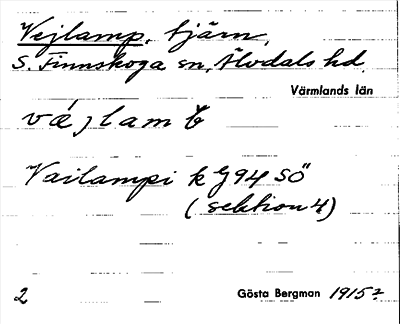 Vejlamp, tjärn,
S. Finnskoga sn, Älvdals hd.
Värmlands län
Vailampi k G94 SÖ
(sektion 4)
2 Gösta Bergman 1915?